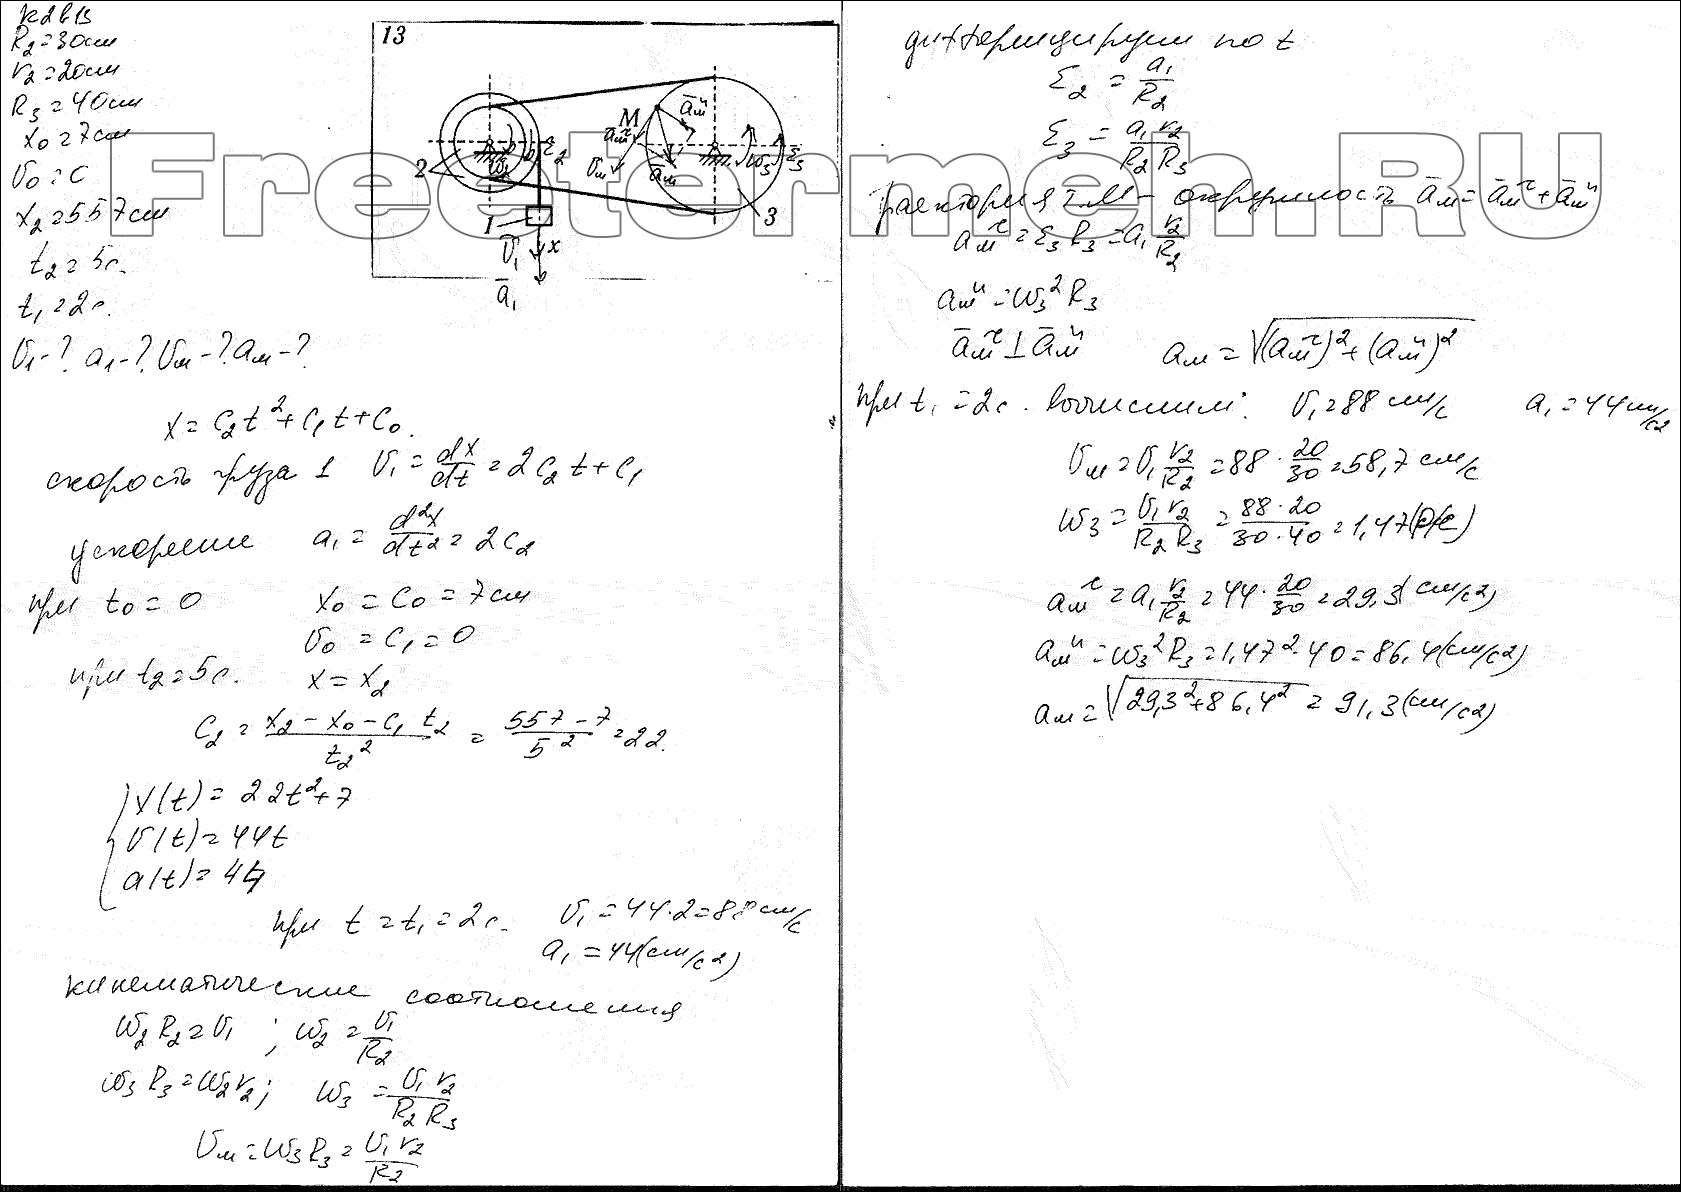 К2В13
R₂=30см
r₂=20см
R₃=40см
x₀=7см
V₀=0
x₂=557см
t₂=5с.
t₁=2с.
V₁-? a₁-? Vм-? aм-?
13
M
2
1
3
V₁
x
a̅₁
ω₂
ε₂
a̅мⁿ
a̅м^τ
V̅м
a̅м
ω₃
ε₃
Freetermeh.RU
x=C₂t²+C₁t+C₀.
скорость груза 1 V₁=dx/dt=2C₂t+C₁
ускорение a₁=d²x/dt²=2C₂
при t₀=0 x₀=C₀=7см
V₀=C₁=0
при t₂=5с. x=x₂
C₂=(x₂-x₀-C₁t₂)/t₂²=(557-7)/5²=22.
x(t)=22t²+7
V(t)=44t
a(t)=44
при t=t₁=2с. V₁=44·2=88см/с
a₁=44(см/с²)
кинематические соотношения
ω₂R₂=V₁; ω₂=V₁/R₂
ω₃R₃=ω₂r₂; ω₃=V₁r₂/R₂R₃
Vм=ω₃R₃=V₁r₂/R₂
дифференцируем по t
ε₂=a₁/R₂
ε₃=a₁r₂/R₂R₃
Траектория т.М - окружность a̅м=a̅м^τ+a̅мⁿ
aм^τ=ε₃R₃=a₁r₂/R₂
aмⁿ=ω₃²R₃
a̅м^τ⊥a̅мⁿ aм=√((aм^τ)²+(aмⁿ)²)
при t₁=2с. вычислим: V₁=88см/с a₁=44см/с²
Vм=V₁r₂/R₂=88·20/30=58,7см/с
ω₃=V₁r₂/R₂R₃=88·20/30·40=1,47(р/с)
aм^τ=a₁r₂/R₂=44·20/30=29,3(см/с²)
aмⁿ=ω₃²R₃=1,47²·40=86,4(см/с²)
aм=√(29,3²+86,4²)=91,3(см/с²)